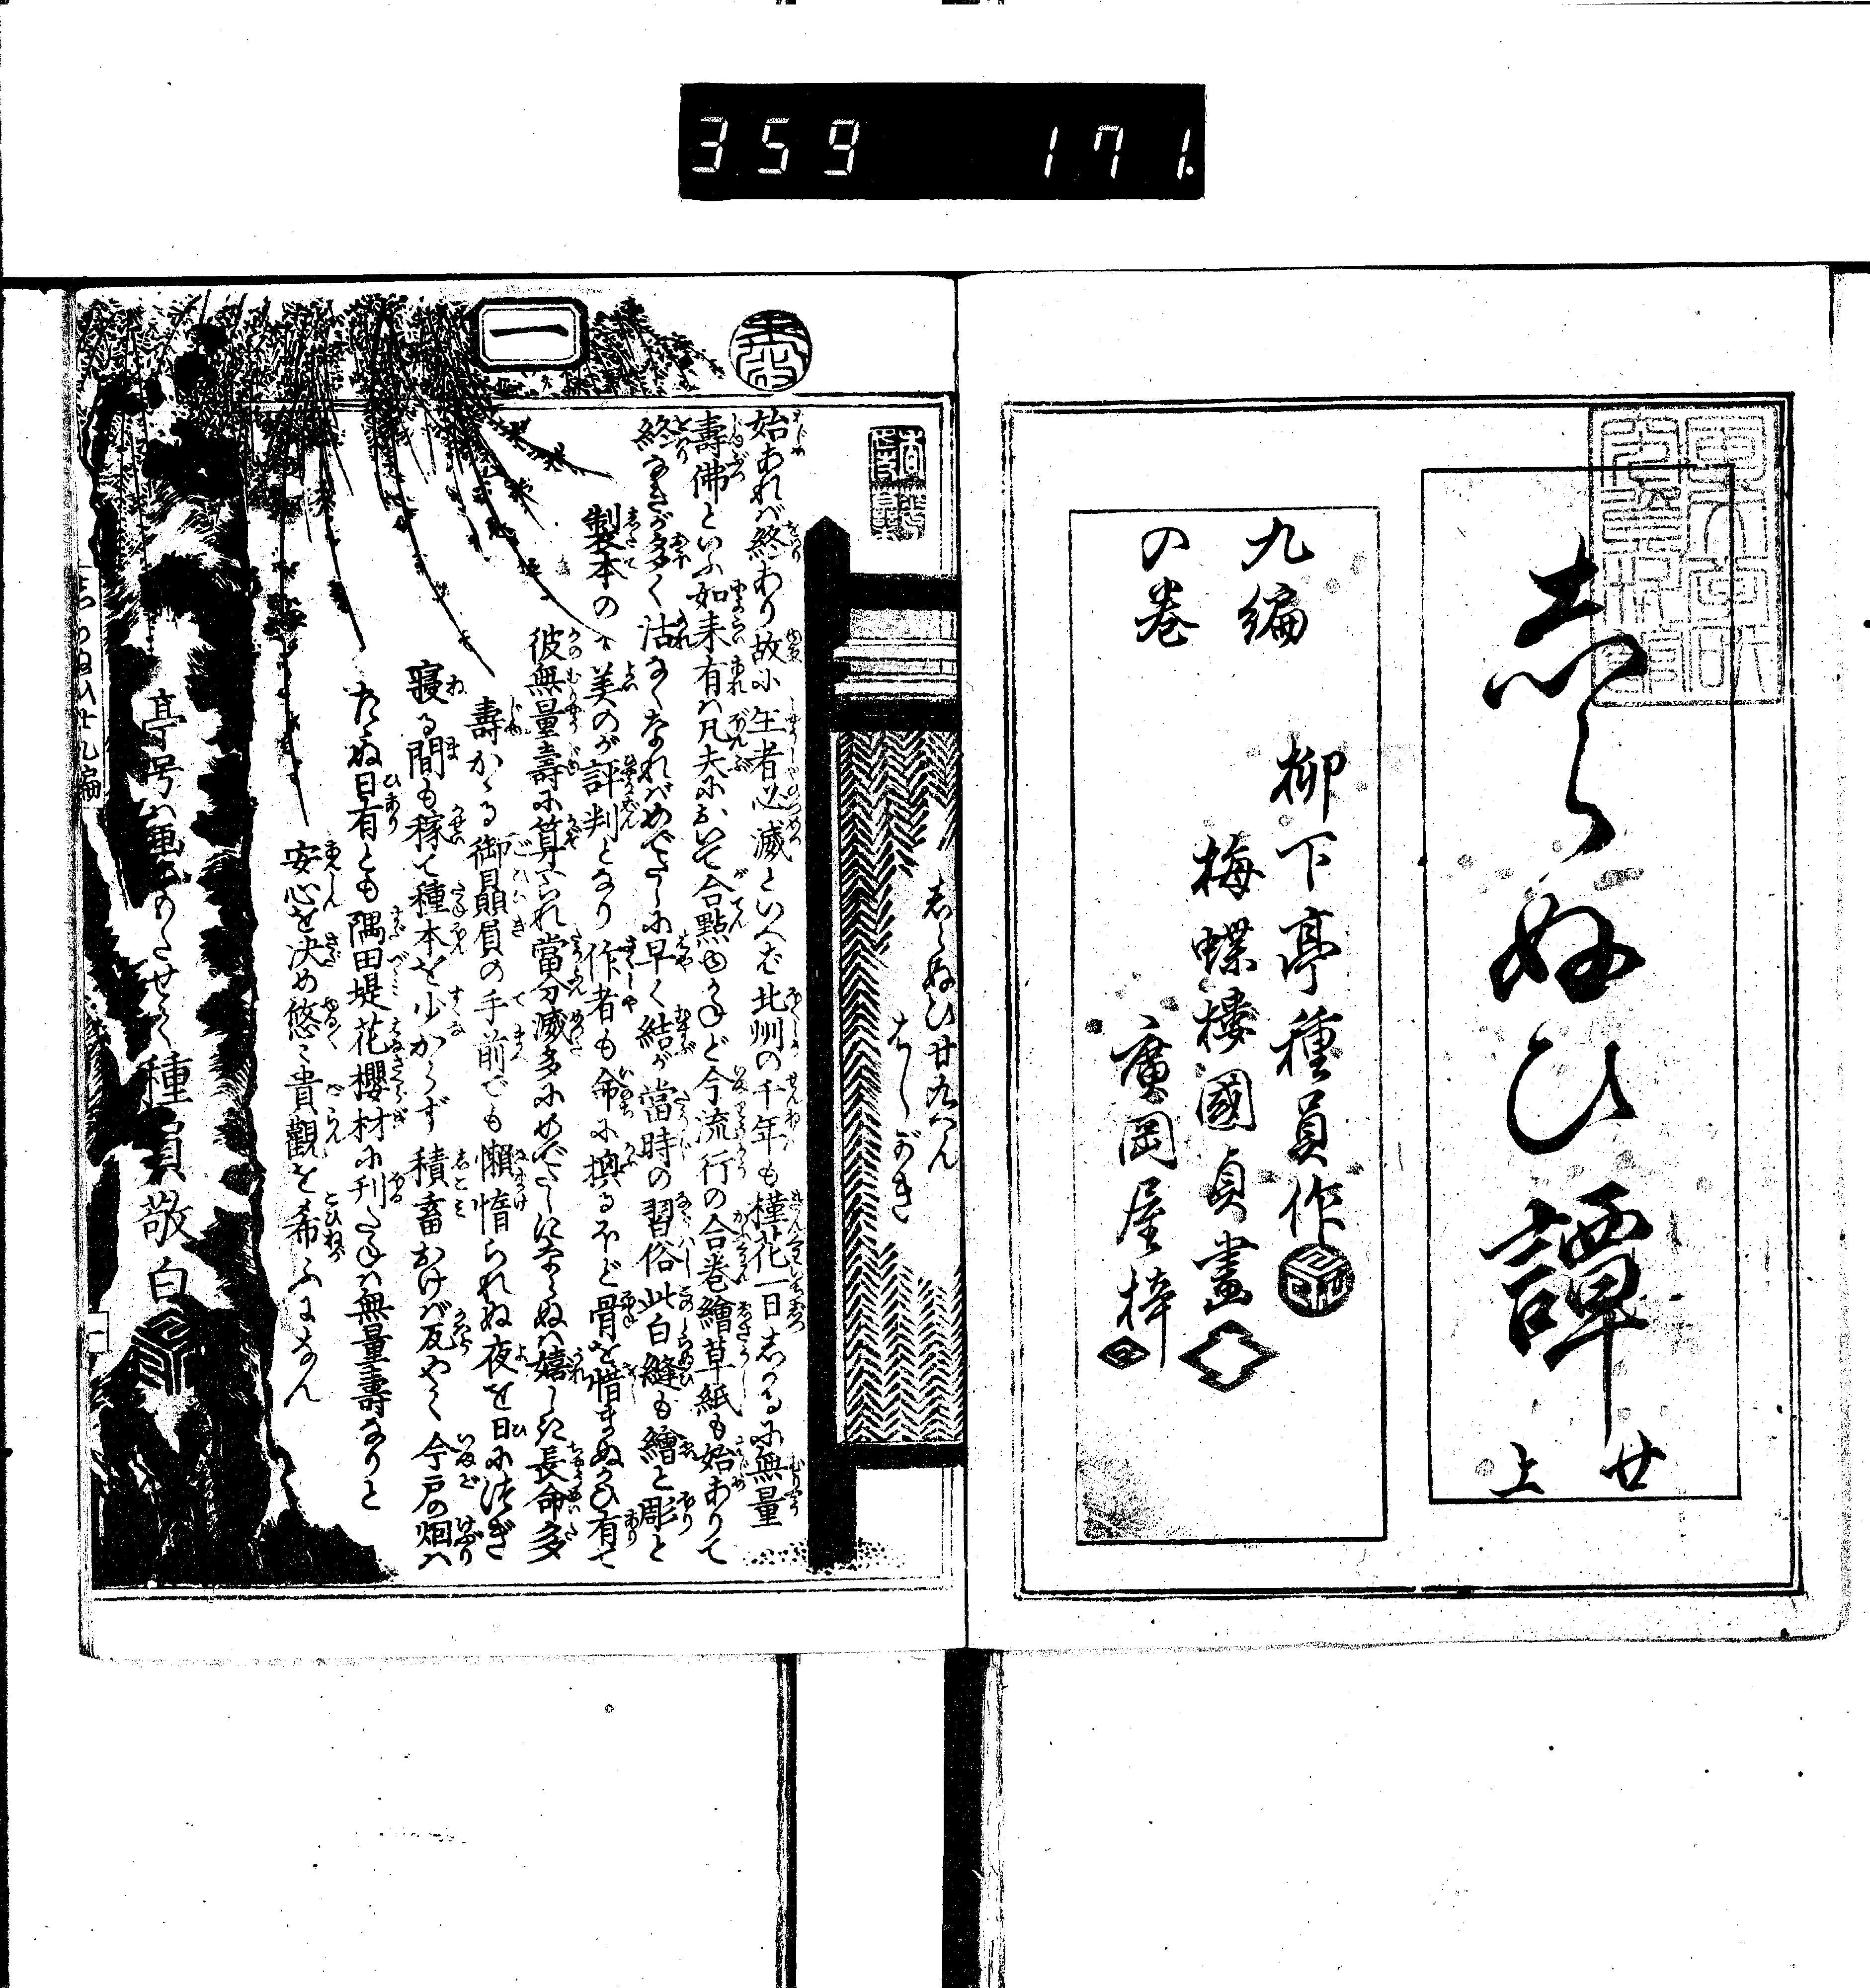 359 171.
志らぬひ譚
廿
上
九編
の巻
柳下亭種員作
梅蝶樓國貞畫
廣岡屋梓
一
志らぬひ廿九へん
はしがき
始あれバ終あり故に生者必滅といへど北州の千年も槿花一日志かるに無量
壽佛といふ如来有ハ凡夫において合點ゆかねど今流行の合巻繪草紙も始ありて
終なきが多く活なくなれバめでたしに早く結が當時の習俗此白縫も繪と彫と
製本の美のが評判となり作者も命に換るほど骨を惜まぬかひ有て
彼無量壽に算られ當分滅多にめでたしにならぬハ嬉しき長命多
壽かゝる御贔屓の手前でも懶惰られぬ夜を日につぎ
寝る間も稼て種本を少からず積畜おけバ瓦やく今戸の烟ハ
たゝぬ日有とも隅田堤花櫻材に刊たねハ無量壽なりと
安心を決め悠々貴觀を希ふになん
種員敬白